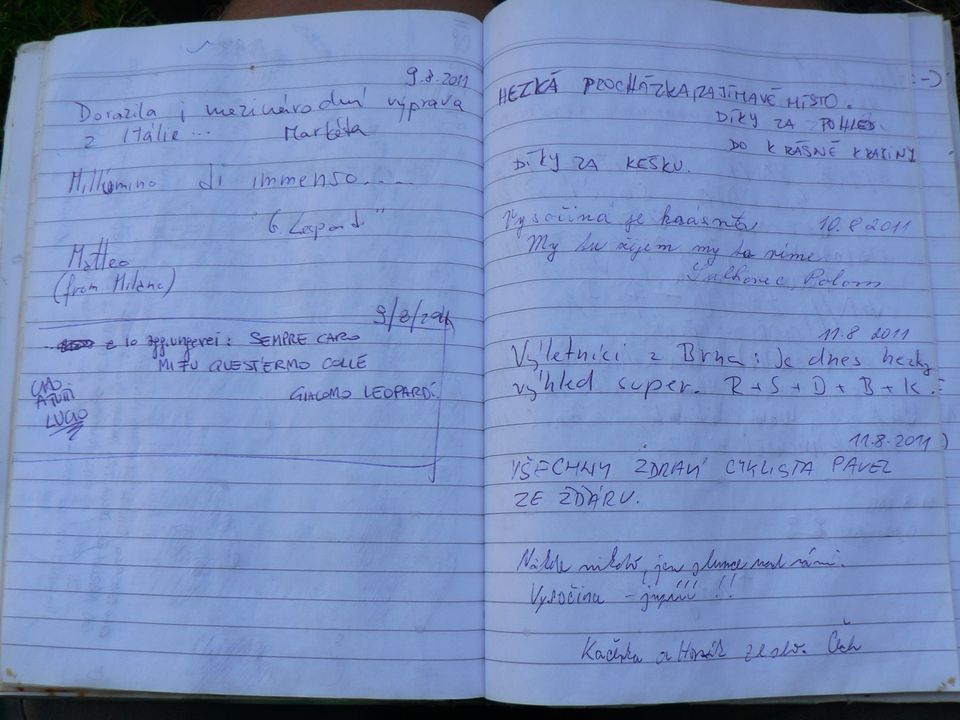 9.8.2011
Dorazila i mezinárodní výprava
z Itálie... Markéta
M'illumino di immenso.....
"G. Leopardi"
Matteo
(from Milano)
9/8/2011
e io aggiungerei: SEMPRE CARO
MI FU QUEST'ERMO COLLE
GIACOMO LEOPARDI.
CIAO
A TUTTI
LUCIO
:-)
HEZKÁ PROCHÁZKA, ZAJÍMAVÉ MÍSTO.
DÍKY ZA POHLED
DO KRÁSNÉ KRAJINY
DÍKY ZA KEŠKU.
Vysočina je krásná 10.8 2011
My tu žijem my to víme
Polom
11.8 2011
Výletníci z Brna: Je dnes hezky
výhled super. R+S+D+B+K
11.8.2011
VŠECHNY ZDRAVÍ CYKLISTA PAVEL
ZE ŽĎÁRU.
Nikde nikdo, jen slunce nad námi.
Vysočina - jupííí !!
Kačenka a Honzík ze stř. Čech